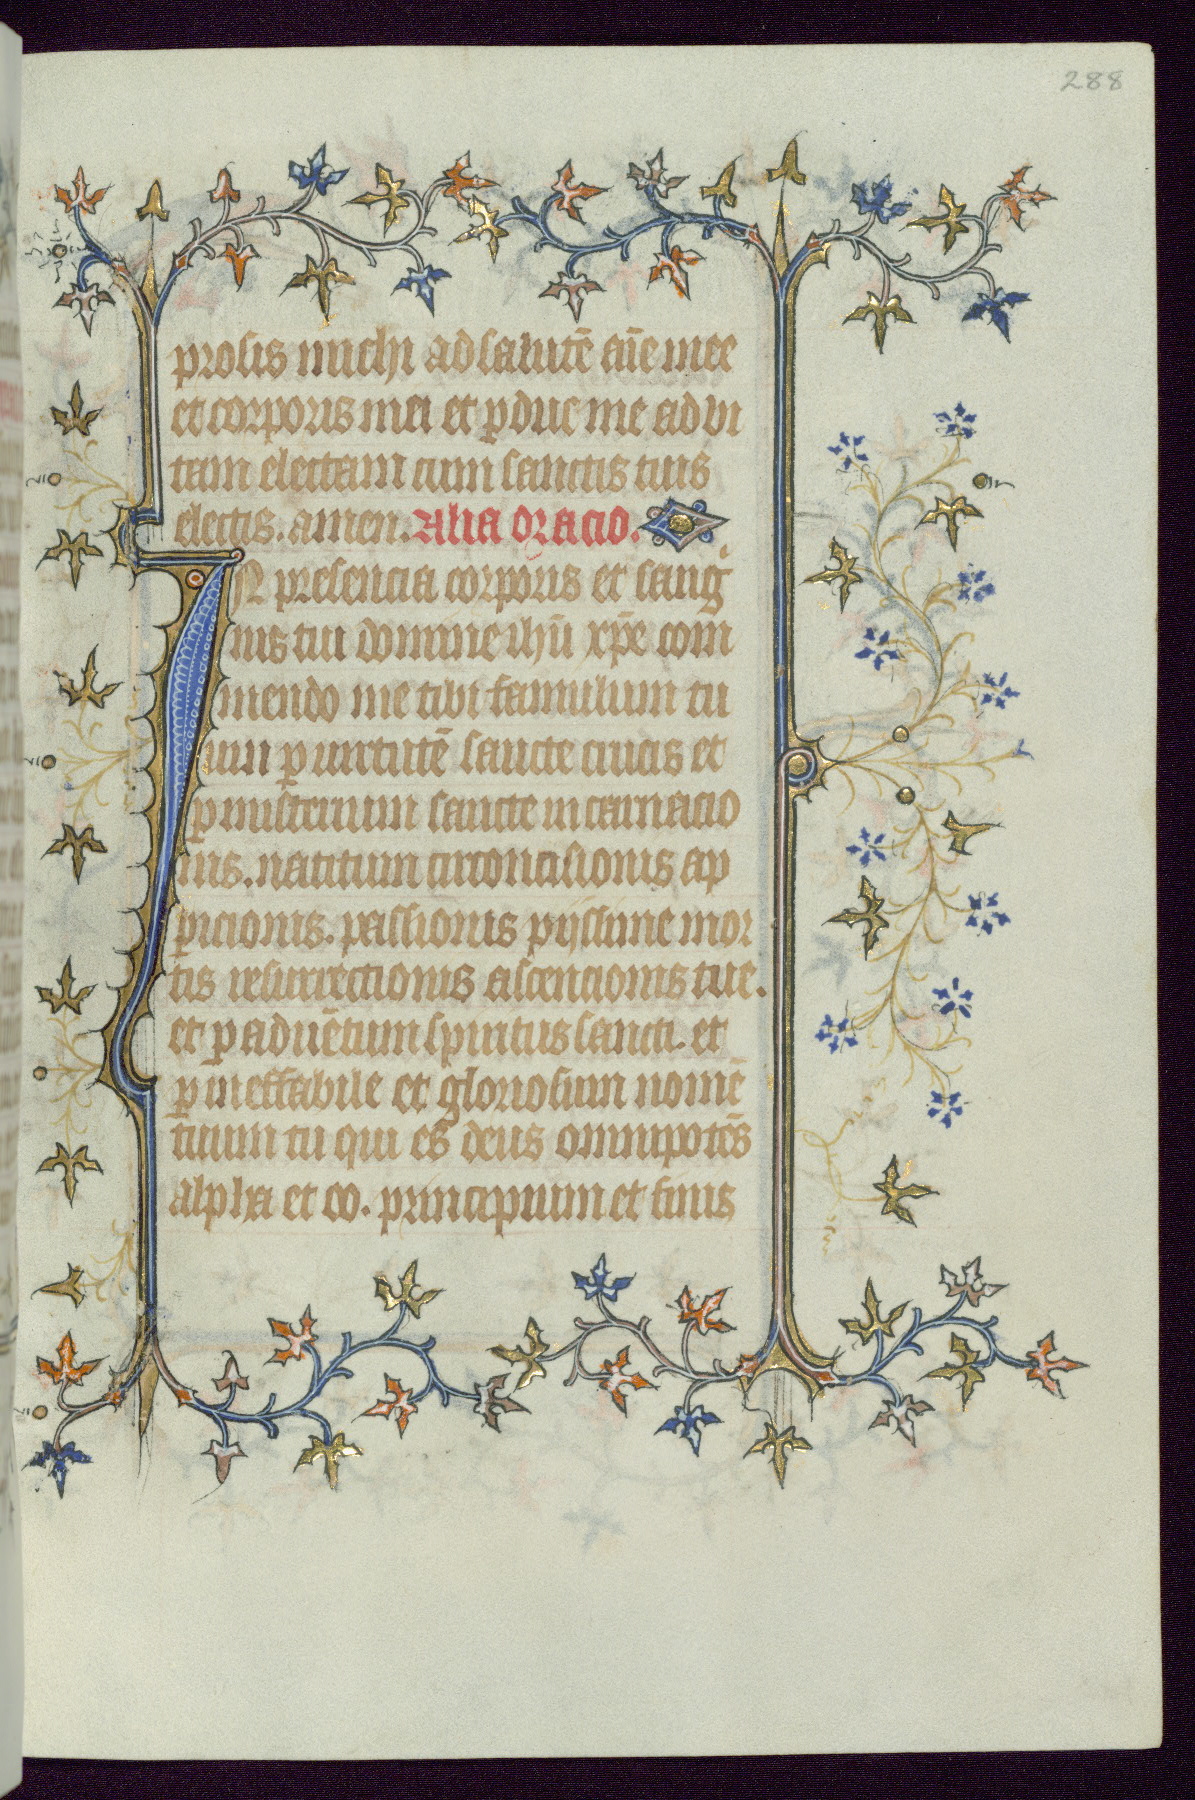 288
prosis michi ad salutē aīe mee
et corporis mei et ꝑduc me ad vi
tam electam cum sanctis tuis
electis. amen. Alia oracio.
IN presencia corporis et sang
nis tui domine ihū xp̄e com
mendo me tibi famulum tu
um ꝑ uirtutē sancte crucis et
ꝑ misterium sancte incarnacio
nis. natiuitum circoncisionis ap
paricionis. passionis pijssime mor
tis resurrectionis ascencionis tue.
et ꝑ aduētum spiritus sancti. et
ꝑ ineffabile et gloriosum nomē
tuum tu qui es deus omnipotēs
alpha et ω. principium et finis